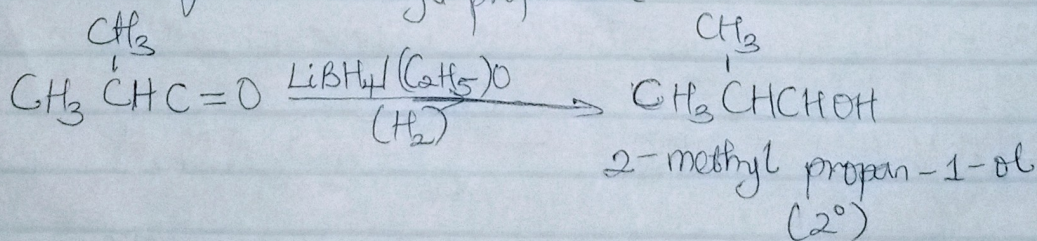 CH3 CH3
CH3 CHC=O LiBH4/(C2H5)O CH3 CHCHOH
(H2)
2-methyl propan-1-ol
(2°)